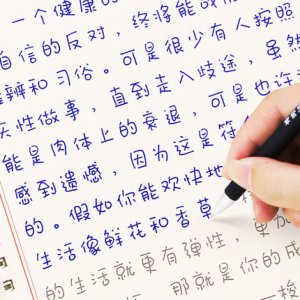 一个健康的
自信的反对，终将能战
辩和习俗。可是很少有人按照
天性做事，直到走入歧途，虽然
能是肉体上的衰退，可是也许
感到遗憾，因为这是符
的。假如你能欢快地
生活像鲜花和香草
的生活就更有弹性，更加
那就是你的成